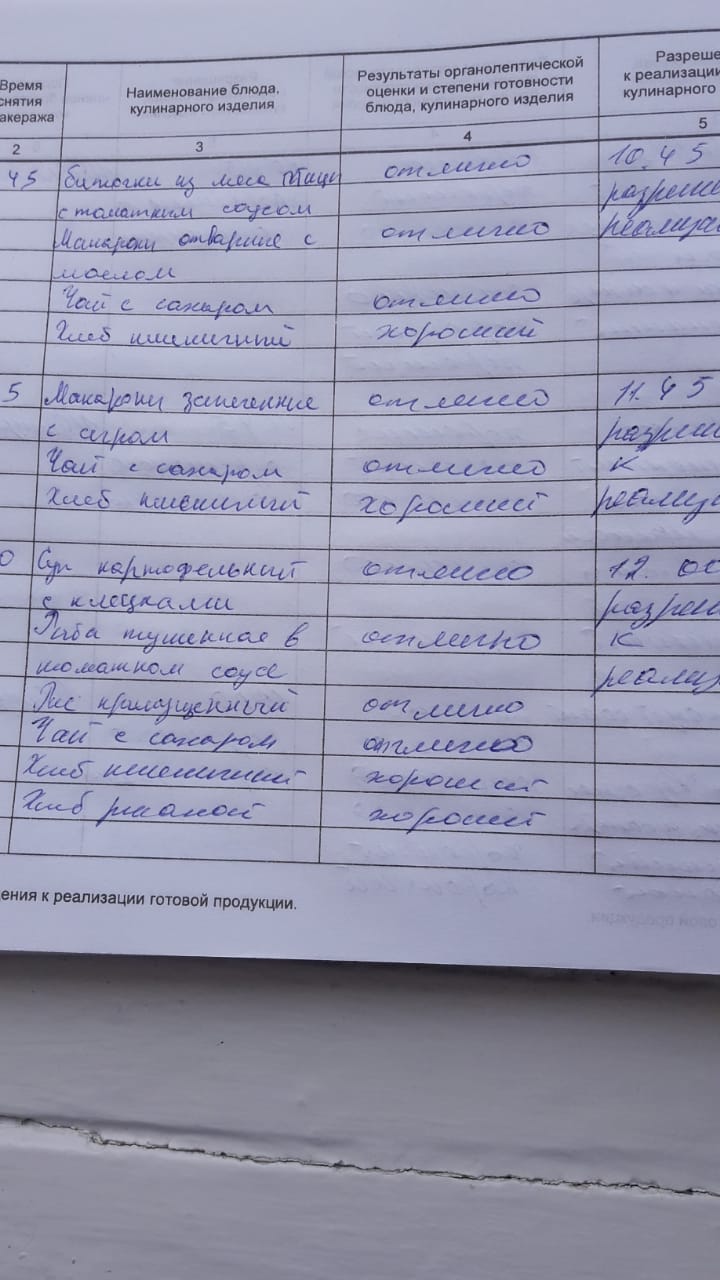 Время
снятия
Наименование блюда,
кулинарного изделия
Результаты органолептической
оценки и степени готовности
блюда, кулинарного изделия
Разреше
к реализации
кулинарного
2 3 4 5
45 Биточки из мяса птицы отлично 10.45
с томатным соусом разреше
Макароны отварные с отлично реализа
маслом
Чай с сахаром отлично
Хлеб пшеничный хороший
5 Макароны запеченные отлично 11.45
с сыром разреш
Чай с сахаром отлично к
Хлеб пшеничный хороший реализа
0 Суп картофельный отлично 12.00
с клецками разреш
Рыба тушенная в отлично к
томатном соусе реализ
Рис припущенный отлично
Чай с сахаром отлично
Хлеб пшеничный хороший
Хлеб ржаной хороший
ения к реализации готовой продукции.